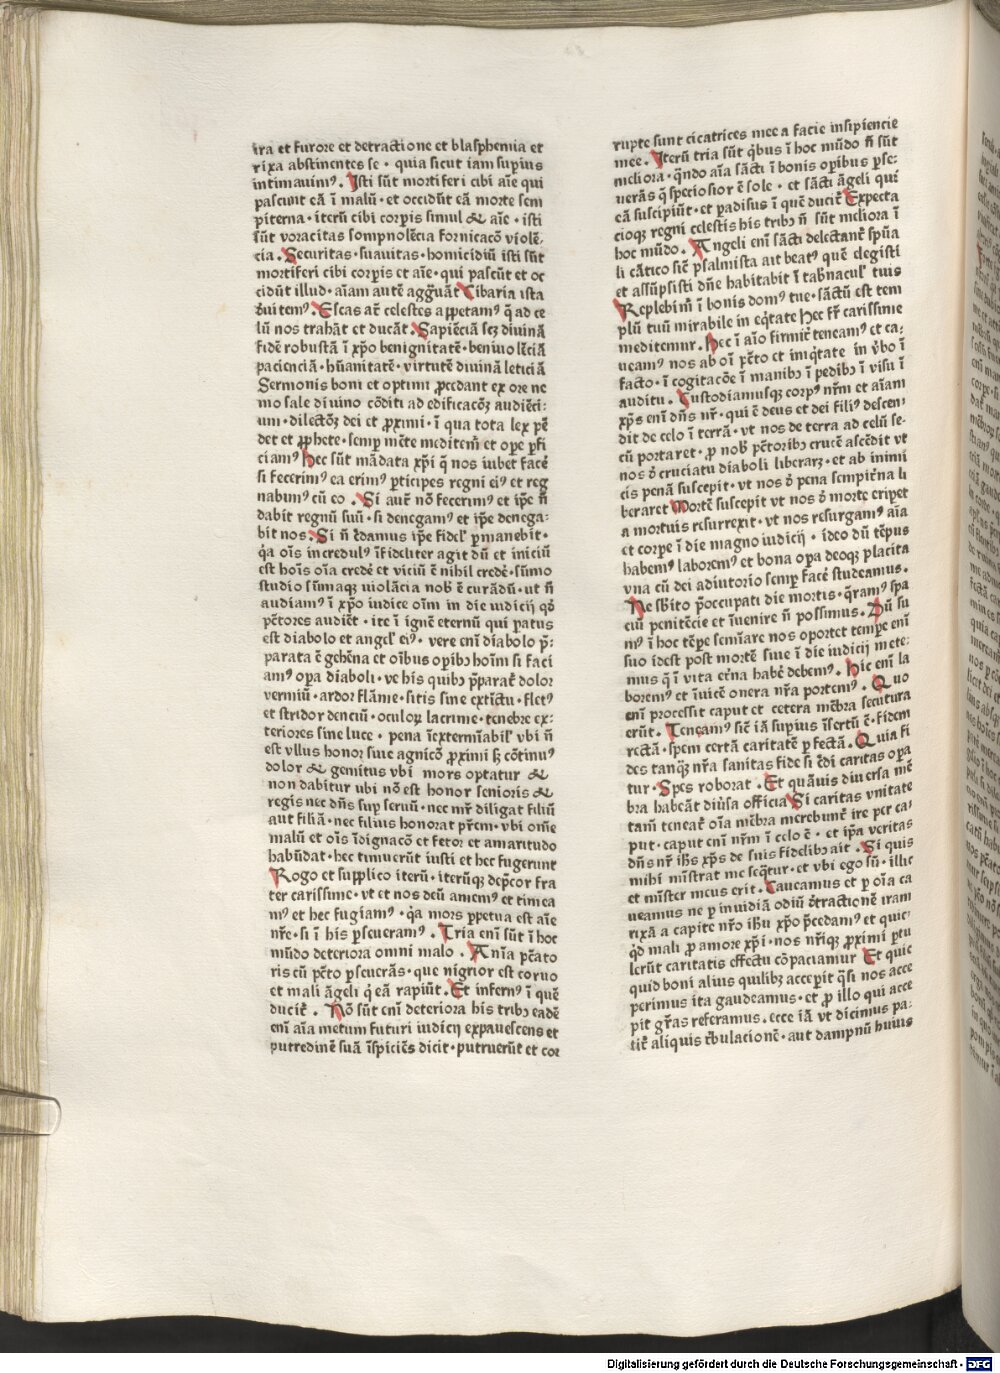 ira et furore et detractione et blasphemia et
rixa abstinentes se · quia sicut iam supius
intimauimꝰ . Isti sūt mortiferi cibi aīe qui
pascunt eā ī malū · et occidūt eā morte sem
piterna · iterū cibi corpis simul ⁊ aīe · isti
sūt voracitas sompnolēcia fornicacō violē⸗
cia . Securitas · suauitas · homicidiū isti sūt
mortiferi cibi corpis et aīe · qui pascūt et oc
cidūt illud · aīam autē aggͣuāt Cibaria ista
Escas at̄ celestes appetamꝰ q̄ ad ce
lū nos trahāt et ducāt . Sapiēciā scꝫ diuinā
fidē robustā ī xp̄o benignitatē · beniuolēciā
pacienciā · hūanitatē · virtutē diuinā leticiā
Sermonis boni et optimi ꝓcedant ex ore nr̄o
mo sale diuino cōditi ad edificacōꝫ audiēci⸗
um · dilectōꝫ dei et ꝓximi · ī qua tota lex pē
det et ꝓphete · semꝑ mēte meditem̄ et oꝑe ꝑfi
ciamꝰ Hec sūt mādata xp̄i q̄ nos iubet facē
si fecerimꝰ ea erimꝰ ꝑticipes regni eiꝰ et reg
nabimꝰ cū eo . Si aut̄ nō fecerimꝰ et ip̄e n̄
dabit regnū suū · si denegamꝰ et ip̄e denega⸗
bit nos . Si n̄ c̄damus ip̄e fidel̄ ꝑmanebit ·
qͣ oīs incredulꝰ īfideliter agit dū et iniciū
est hoīs oīa credē et viciū ē nihil credē · sūmo
studio sūmaqꝫ violācia nob̄ ē curādū · ut n̄
audiamꝰ ī xp̄o iudice oīm in die iudicij qd̄
pctōres audiēt · ite ī ignē eternū qui ꝑatus
est diabolo et angel̄ eiꝰ · vere enī diabolo p̄⸗
parata ē gehēna et oībus oꝑibꝫ hoīm si faci
amꝰ oꝑa diaboli · ve his quibꝫ p̄parat̄ dolor
vermiū · ardor flāme · sitis sine extīctu · fletꝰ
et stridor denciū · oculoꝝ lacrime · tenebre ex⸗
teriores sine luce · pena īexterminabil̄ vbi n̄
est vllus honor siue agnicō ꝓximi sꝫ cōtinuꝰ
dolor ⁊ gemitus vbi mors optatur ⁊
non dabitur ubi nō est honor senioris ⁊
regis nec dn̄s sup seruū · nec mr̄ diligat filiū
aut filiā · nec filius honorat pr̄em · vbi om̄e
malū et oīs īdignacō et fetor et amaritudo
habūdat · hec timuerūt iusti et hec fugerunt
Rogo et supplico iterū · iterūqꝫ depcor fra
ter carissime · vt et nos deū amemꝰ et timea
mꝰ et hec fugiamꝰ · qͣ mors ꝑpetua est aīe
nr̄e · si ī his ꝑseueramꝰ . Tria enī sūt ī hoc
mūdo deteriora omni malo . Anīa pctō
ris cū pctō ꝑseuerās · que nigrior est coruo
et mali āgeli q̄ eā rapiūt . Et infernꝰ ī quē
ducit̄ . Nō sūt enī deteriora his tribꝫ eadē
enī aīa metum futuri iudicij expauescens et
putredinē suā īspiciēs dicit · putruerūt et cor
rupte sunt cicatrices mee a facie insipiencie
mee . Iterū tria sūt qͥbus ī hoc mūdo n̄ sūt
meliora · qͣndo aīa sācti ī bonis oꝑibus ꝑse⸗
uerās q̄ speciosior ē sole · et sācti āgeli qui
eā suscipiūt · et ꝑadisus ī quē ducit̄ Expecta
cioqꝫ regni celestis his tribꝫ n̄ sūt meliora ī
hoc mūdo . Angeli enī sācti delectant̄ spūa
li cātico sic̄ psalmista ait beatꝰ quē elegisti
et assūpsisti dn̄e habitabit ī tab̄naculꝭ tuis
Replebim̄ ī bonis domꝰ tue · sāctū est tem
plū tuū mirabile in eqͥtate Hec fr̄ carissime
meditemur . Hec ī aīo firmit̄ teneamꝰ et ca⸗
ueamꝰ nos ab oī pctō et iniqͥtate in v̄bo ī
facto · ī cogitacōe ī manibꝫ ī pedibꝫ ī visu ī
auditu . Custodiamusqꝫ corpꝰ nr̄m et aīam
xp̄s enī dn̄s nr̄ · qui ē deus et dei filiꝰ descen⸗
dit de celo ī terrā · vt nos de terra ad celū se⸗
cū portaret · ꝓ nob̄ pctōribꝫ crucē ascēdit vt
nos d̄ cruciatu diaboli liberaꝝ · et ab inimi
cis penā suscepit · vt nos d̄ pena sempit̄na li
beraret Mortē suscepit vt nos d̄ morte eriꝑet
a mortuis resurrexit · vt nos resurgamꝰ aīa
et corpe ī die magno iudicij · ideo dū tēpus
habemꝰ laboremꝰ et bona oꝑa deoqꝫ placita
vna cū dei adiutorio semꝑ facē studeamus .
Ne sb̄ito p̄occupati die mortis · qͣramꝰ spa
ciū penitēcie et īuenire n̄ possimus . Dū su
mꝰ ī hoc tēpe semīare nos oportet tempe enī
suo idest post mortē siue ī die iudicij mete⸗
mus q̄ ī vita et̄na habē debemꝰ . Hic enī la
boremꝰ et īuicē onera nr̄a portemꝰ . Quo
enī processit caput et cetera mēbra secutura
erūt . Teneamꝰ sic̄ iā supius īsertū ē · fidem
rectā · spem certā caritatē ꝑfectā . Quia fi
des tanqͣꝫ nr̄a sanitas fide si c̄di caritas opa
tur . Spes roborat . Et quāuis diuersa mē
bra habeāt diūsa officia Si caritas vnitate
tam̄ teneat̄ oīa mēbra merebunt̄ ire per ca⸗
put · caput enī nr̄m ī celo ē · et ip̄a veritas
dn̄s nr̄ ih̄s xp̄s de suis fidelibꝫ ait . Si quis
mihi mīstrat me seqͣtur · et vbi ego sū · illic
et mīster meus erit . Caueamus et ꝑ oīa ca
ueamus ne ꝑ inuidiā odiū d̄tractionē iram
rixā a capite nr̄o ih̄u xp̄o p̄cedamꝰ et quic⸗
qͥd mali ꝓ amore xp̄i · nos nr̄iqꝫ ꝓximi ꝑtu
lerūt caritatis effectu cōpaciamur Et quic
quid boni alius quilibꝫ accepit qͣsi nos acce
perimus ita gaudeamus · et ꝓ illo qui acce
pit gr̄as referamus · ecce iā vt dicimus pa⸗
tit̄ aliquis t̄bulacionē · aut dampnū huius
Digitalisierung gefördert durch die Deutsche Forschungsgemeinschaft - DFG